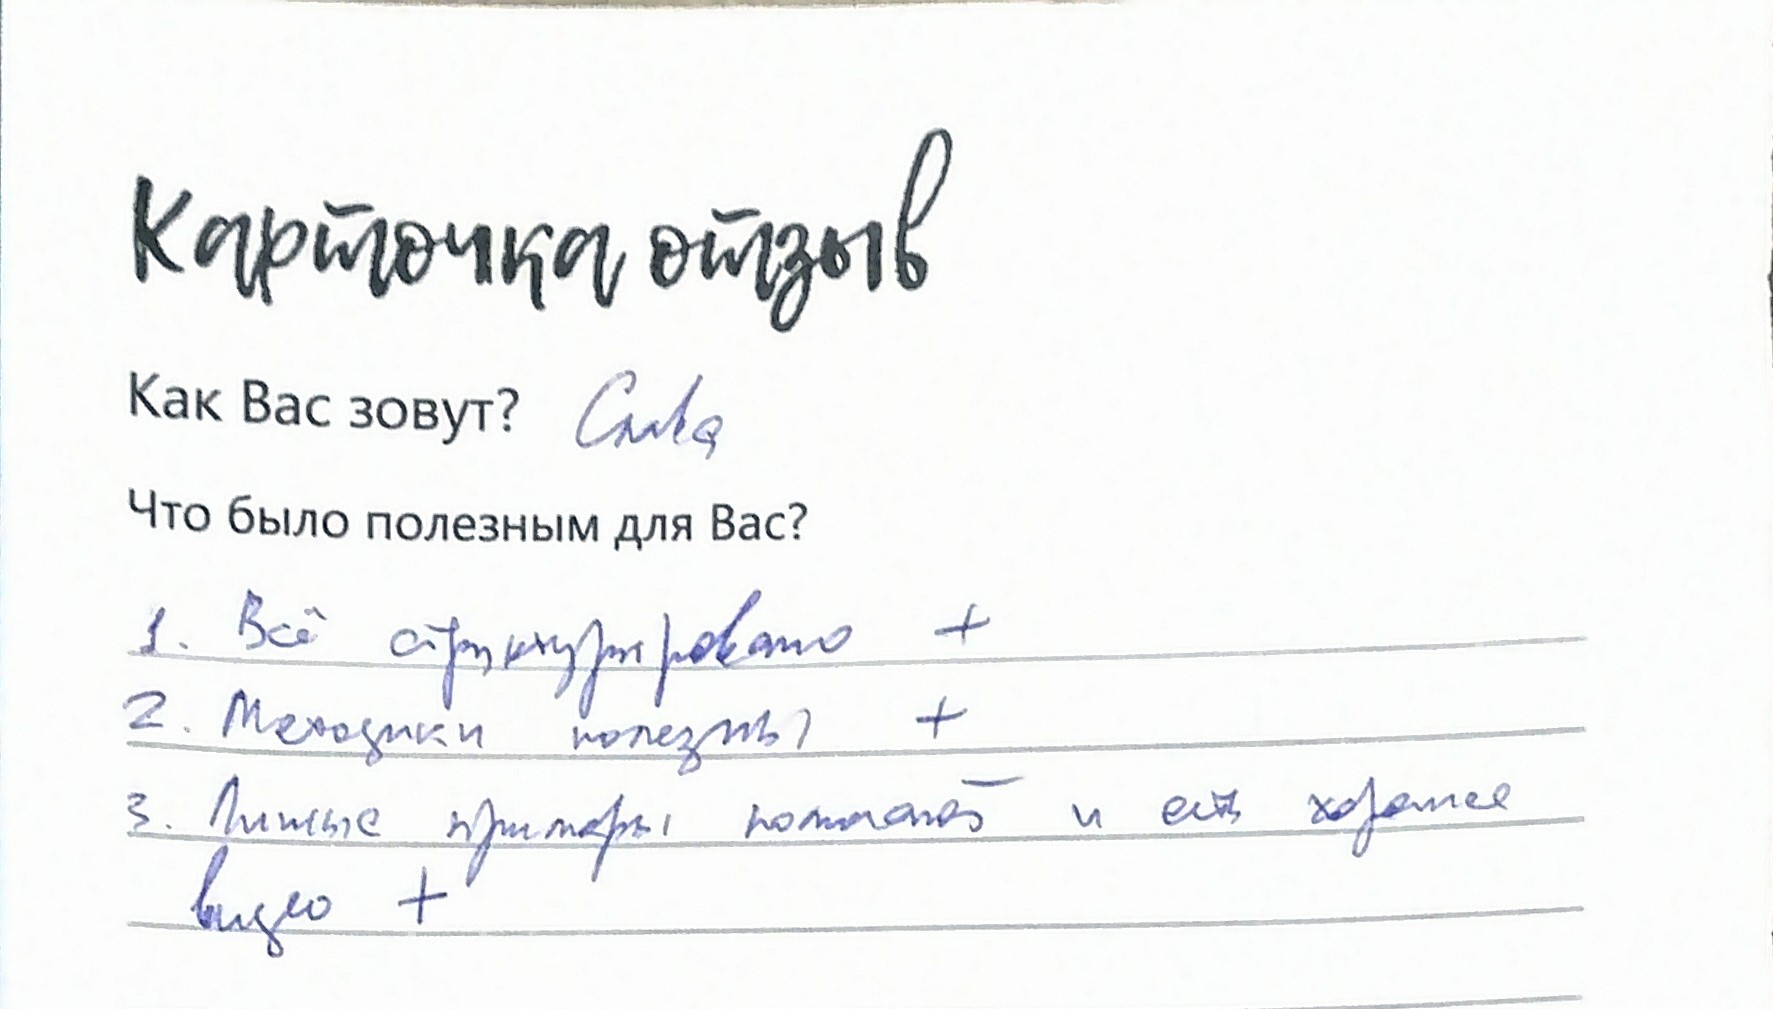 Карточка отзыв
Как Вас зовут? Слава
Что было полезным для Вас?
1. Всё структурировано +
2. Методики полезны +
3. Личные примеры помогают и есть хорошее
видео +